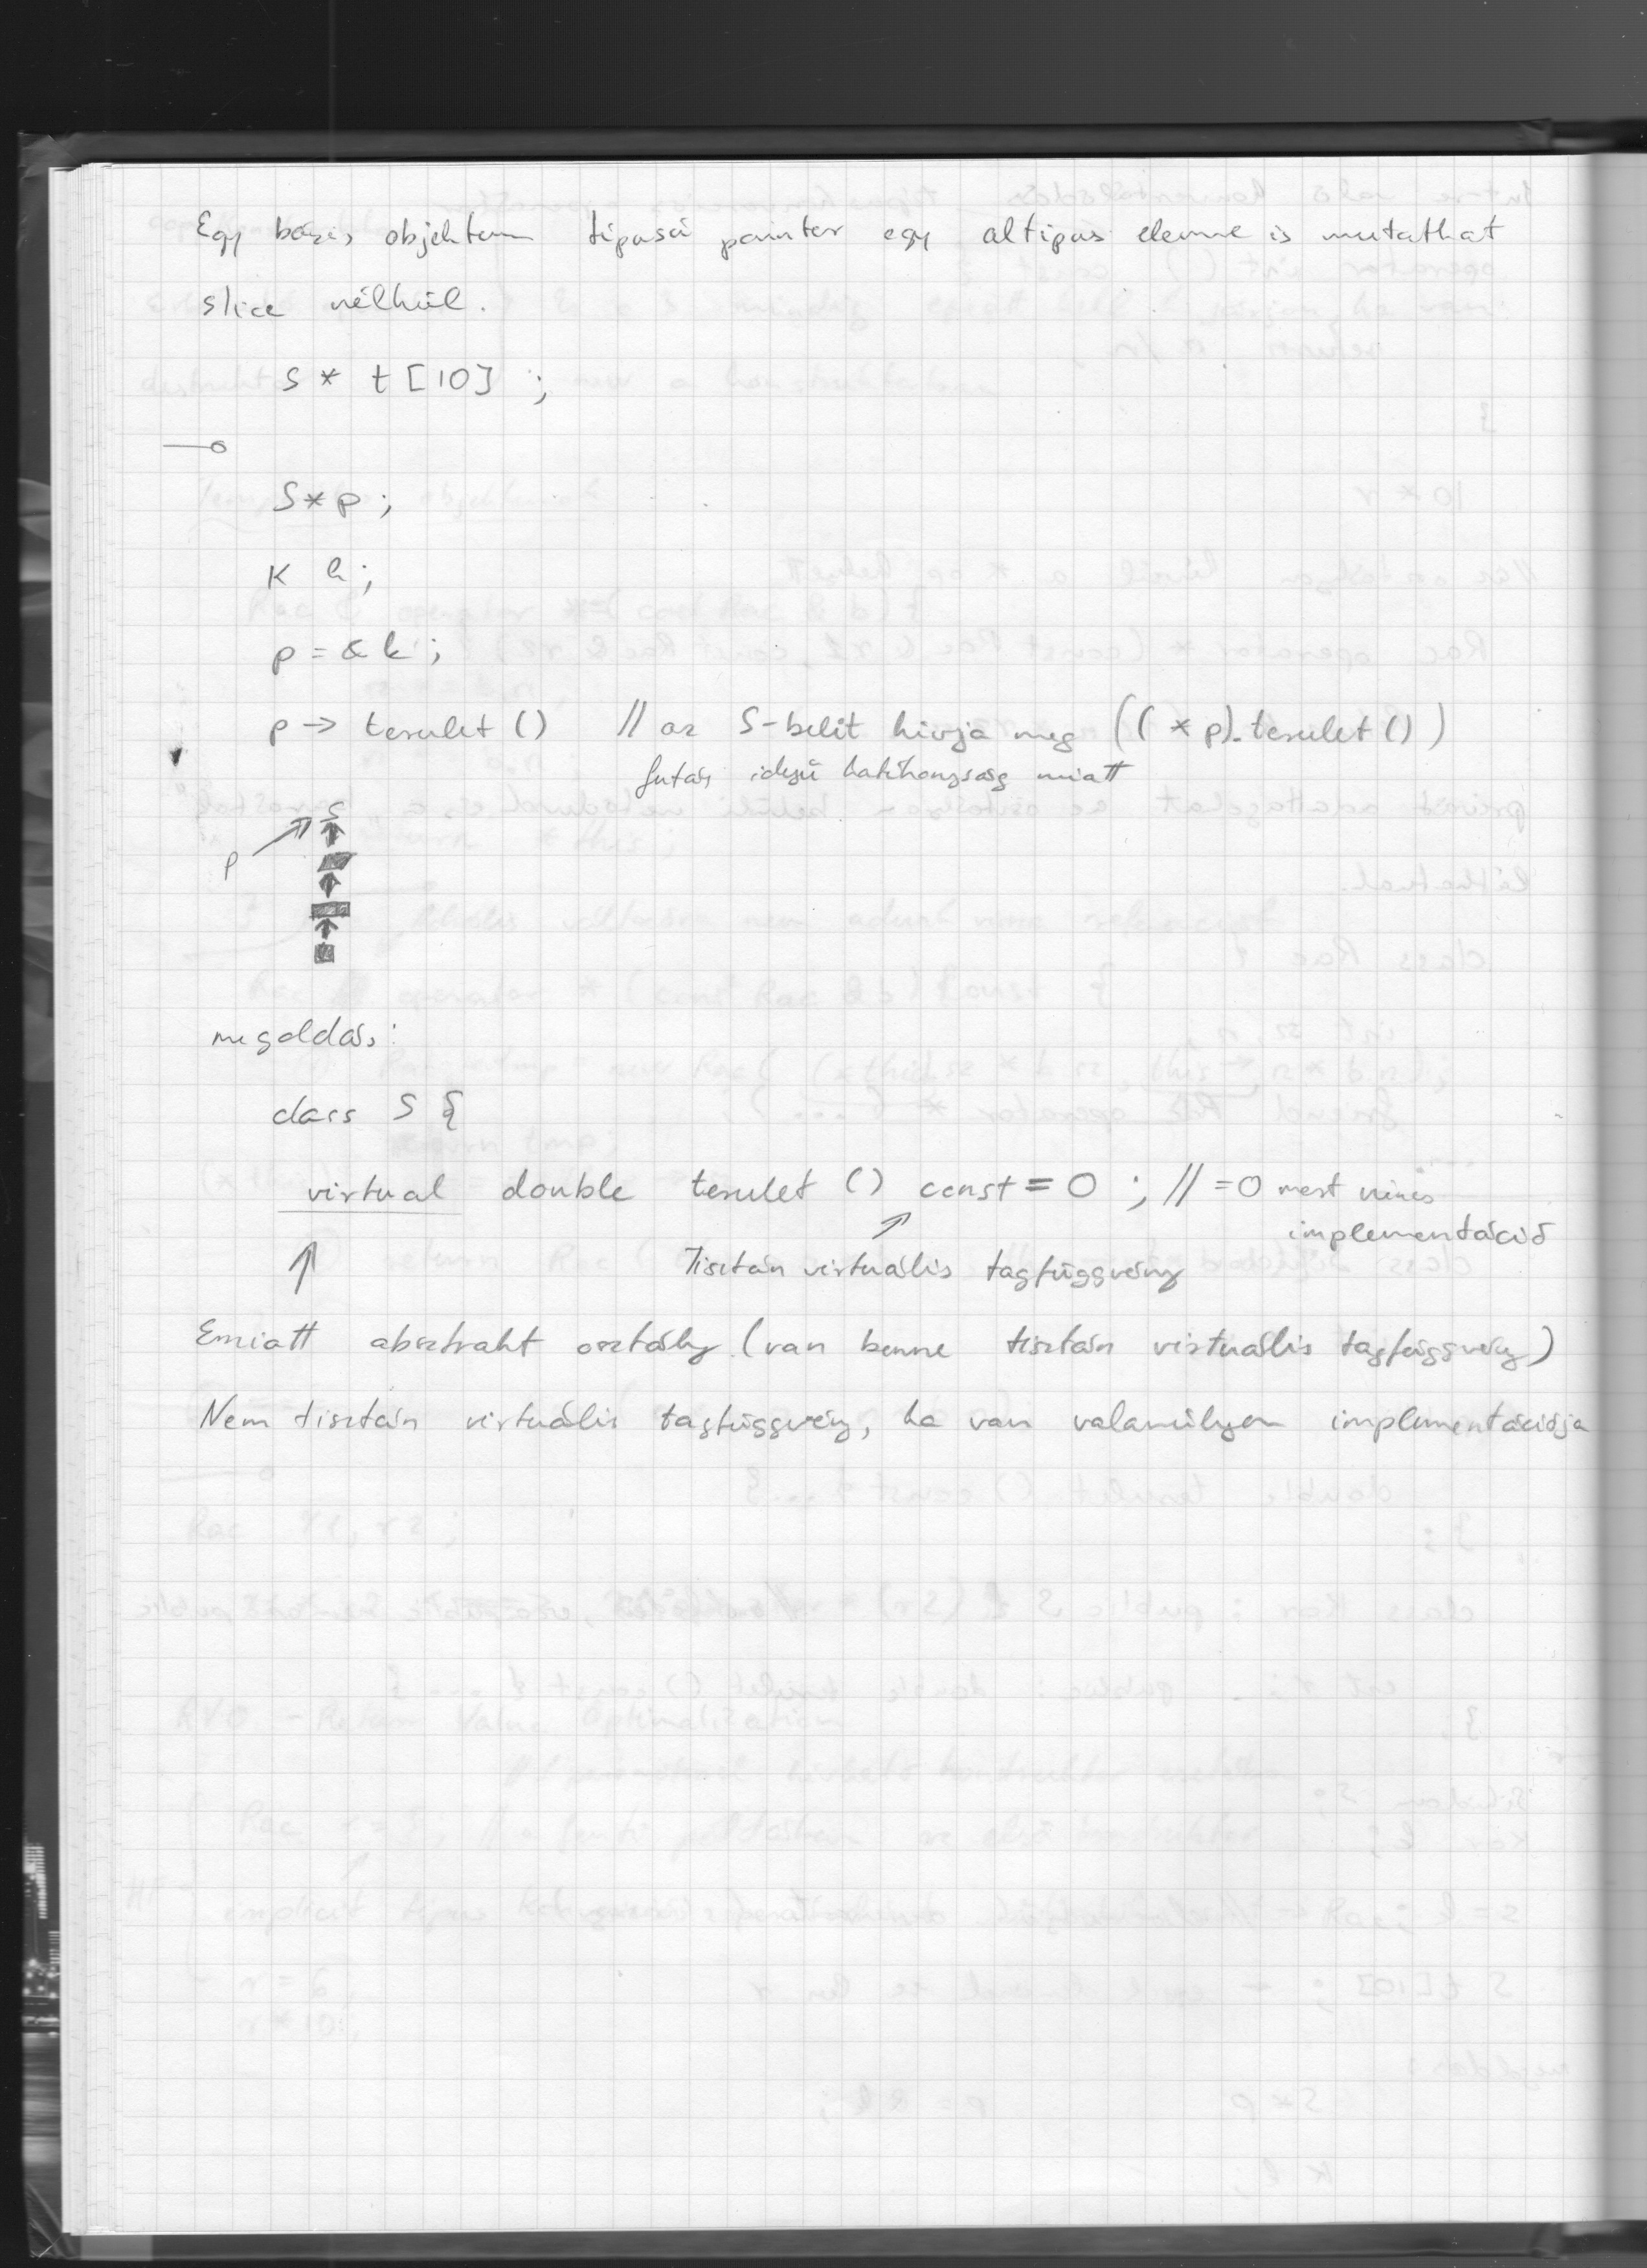 Egy bázis objektum típusú pointer egy altípus elemre is mutathat
slice nélkül.
S * t [10] ;
S * p ;
K k ;
p = & k ;
p -> terulet () // az S-belit hívja meg ((* p).terulet ())
futás idejű hatékonyság miatt
S
p
megoldás:
class S {
virtual double terulet () const = 0 ; // = 0 mert nincs
implementáció
Tisztán virtuális tagfüggvény
Emiatt absztrakt osztály (van benne tisztán virtuális tagfüggvény)
Nem tisztán virtuális tagfüggvény, ha van valamilyen implementációja